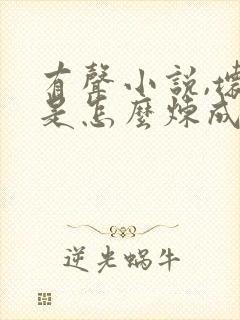 有聲小說,
是怎麼煉成
逆光蜗牛